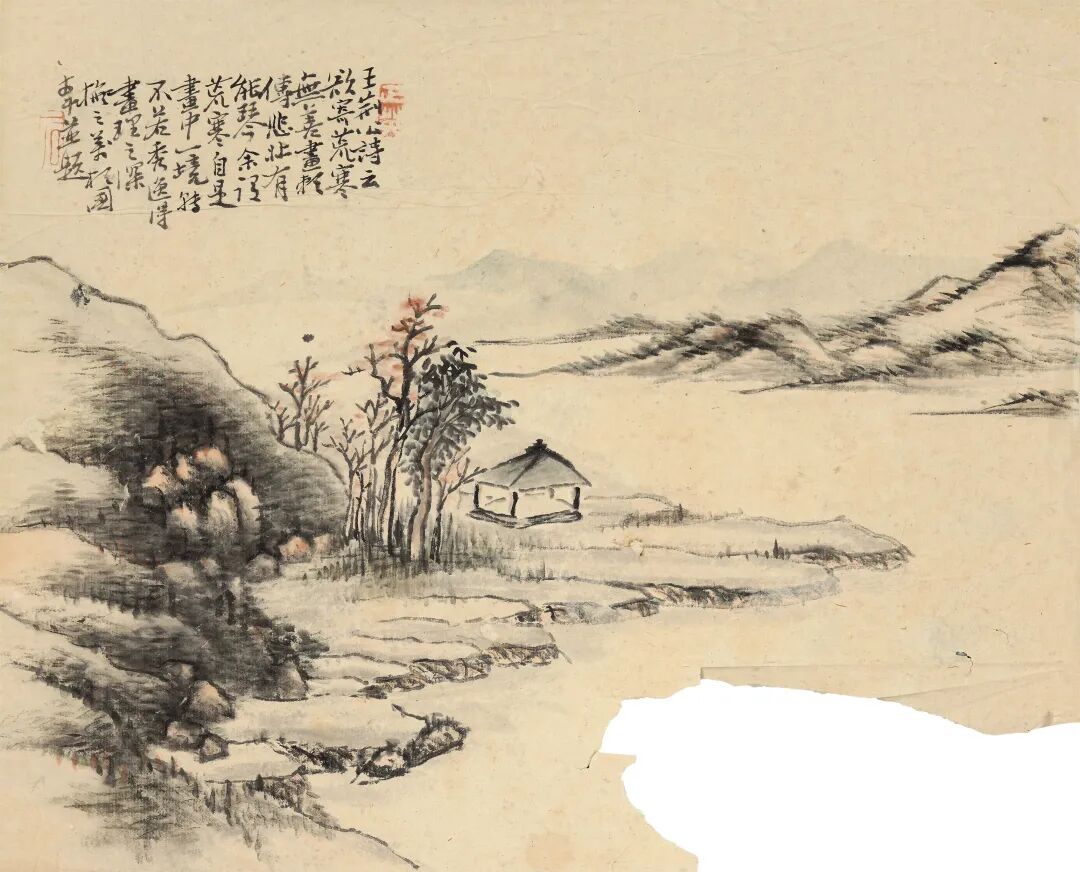 王荊公詩云
欲寄荒寒
無善畫賴
傳悲壯有
能琴余謂
荒寒自是
畫中一境特
不若秀逸得
畫理之深
之於圖
題